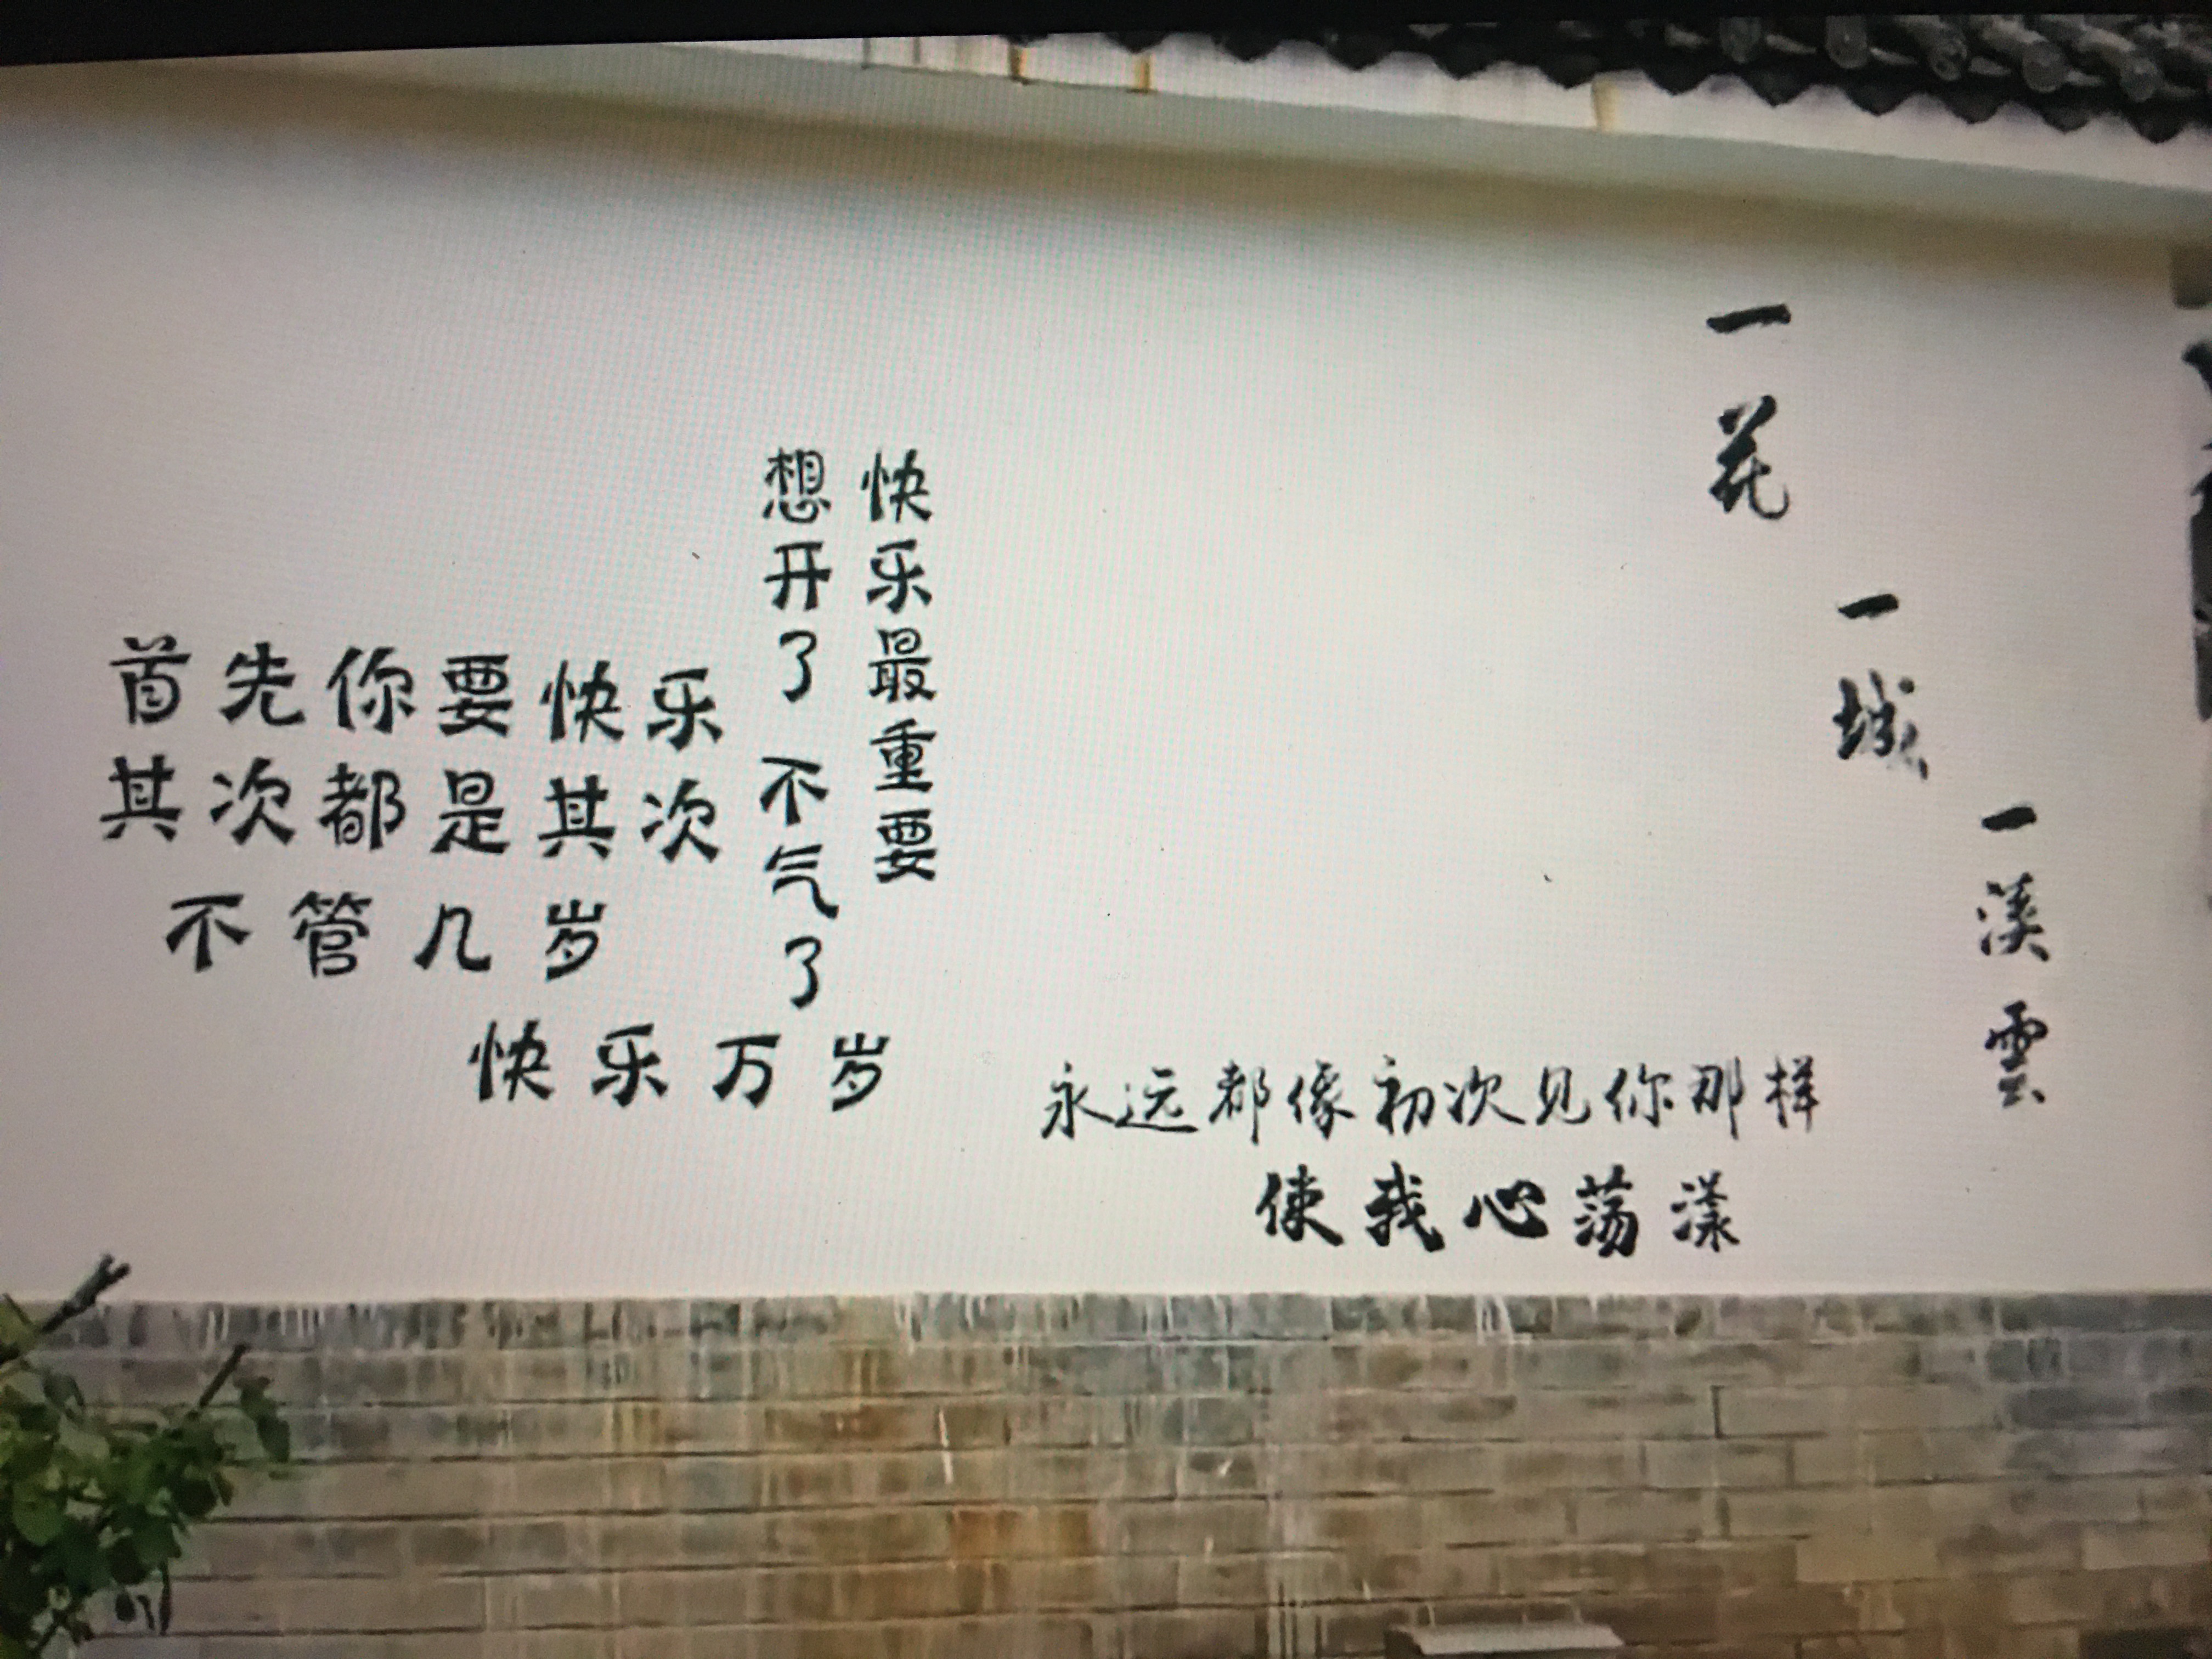 首先你要快乐
其次都是其次
不管几岁
快乐万岁
快乐最重要
想开了 不气了
一花
一城
一溪雲
永远都像初次见你那样
使我心荡漾